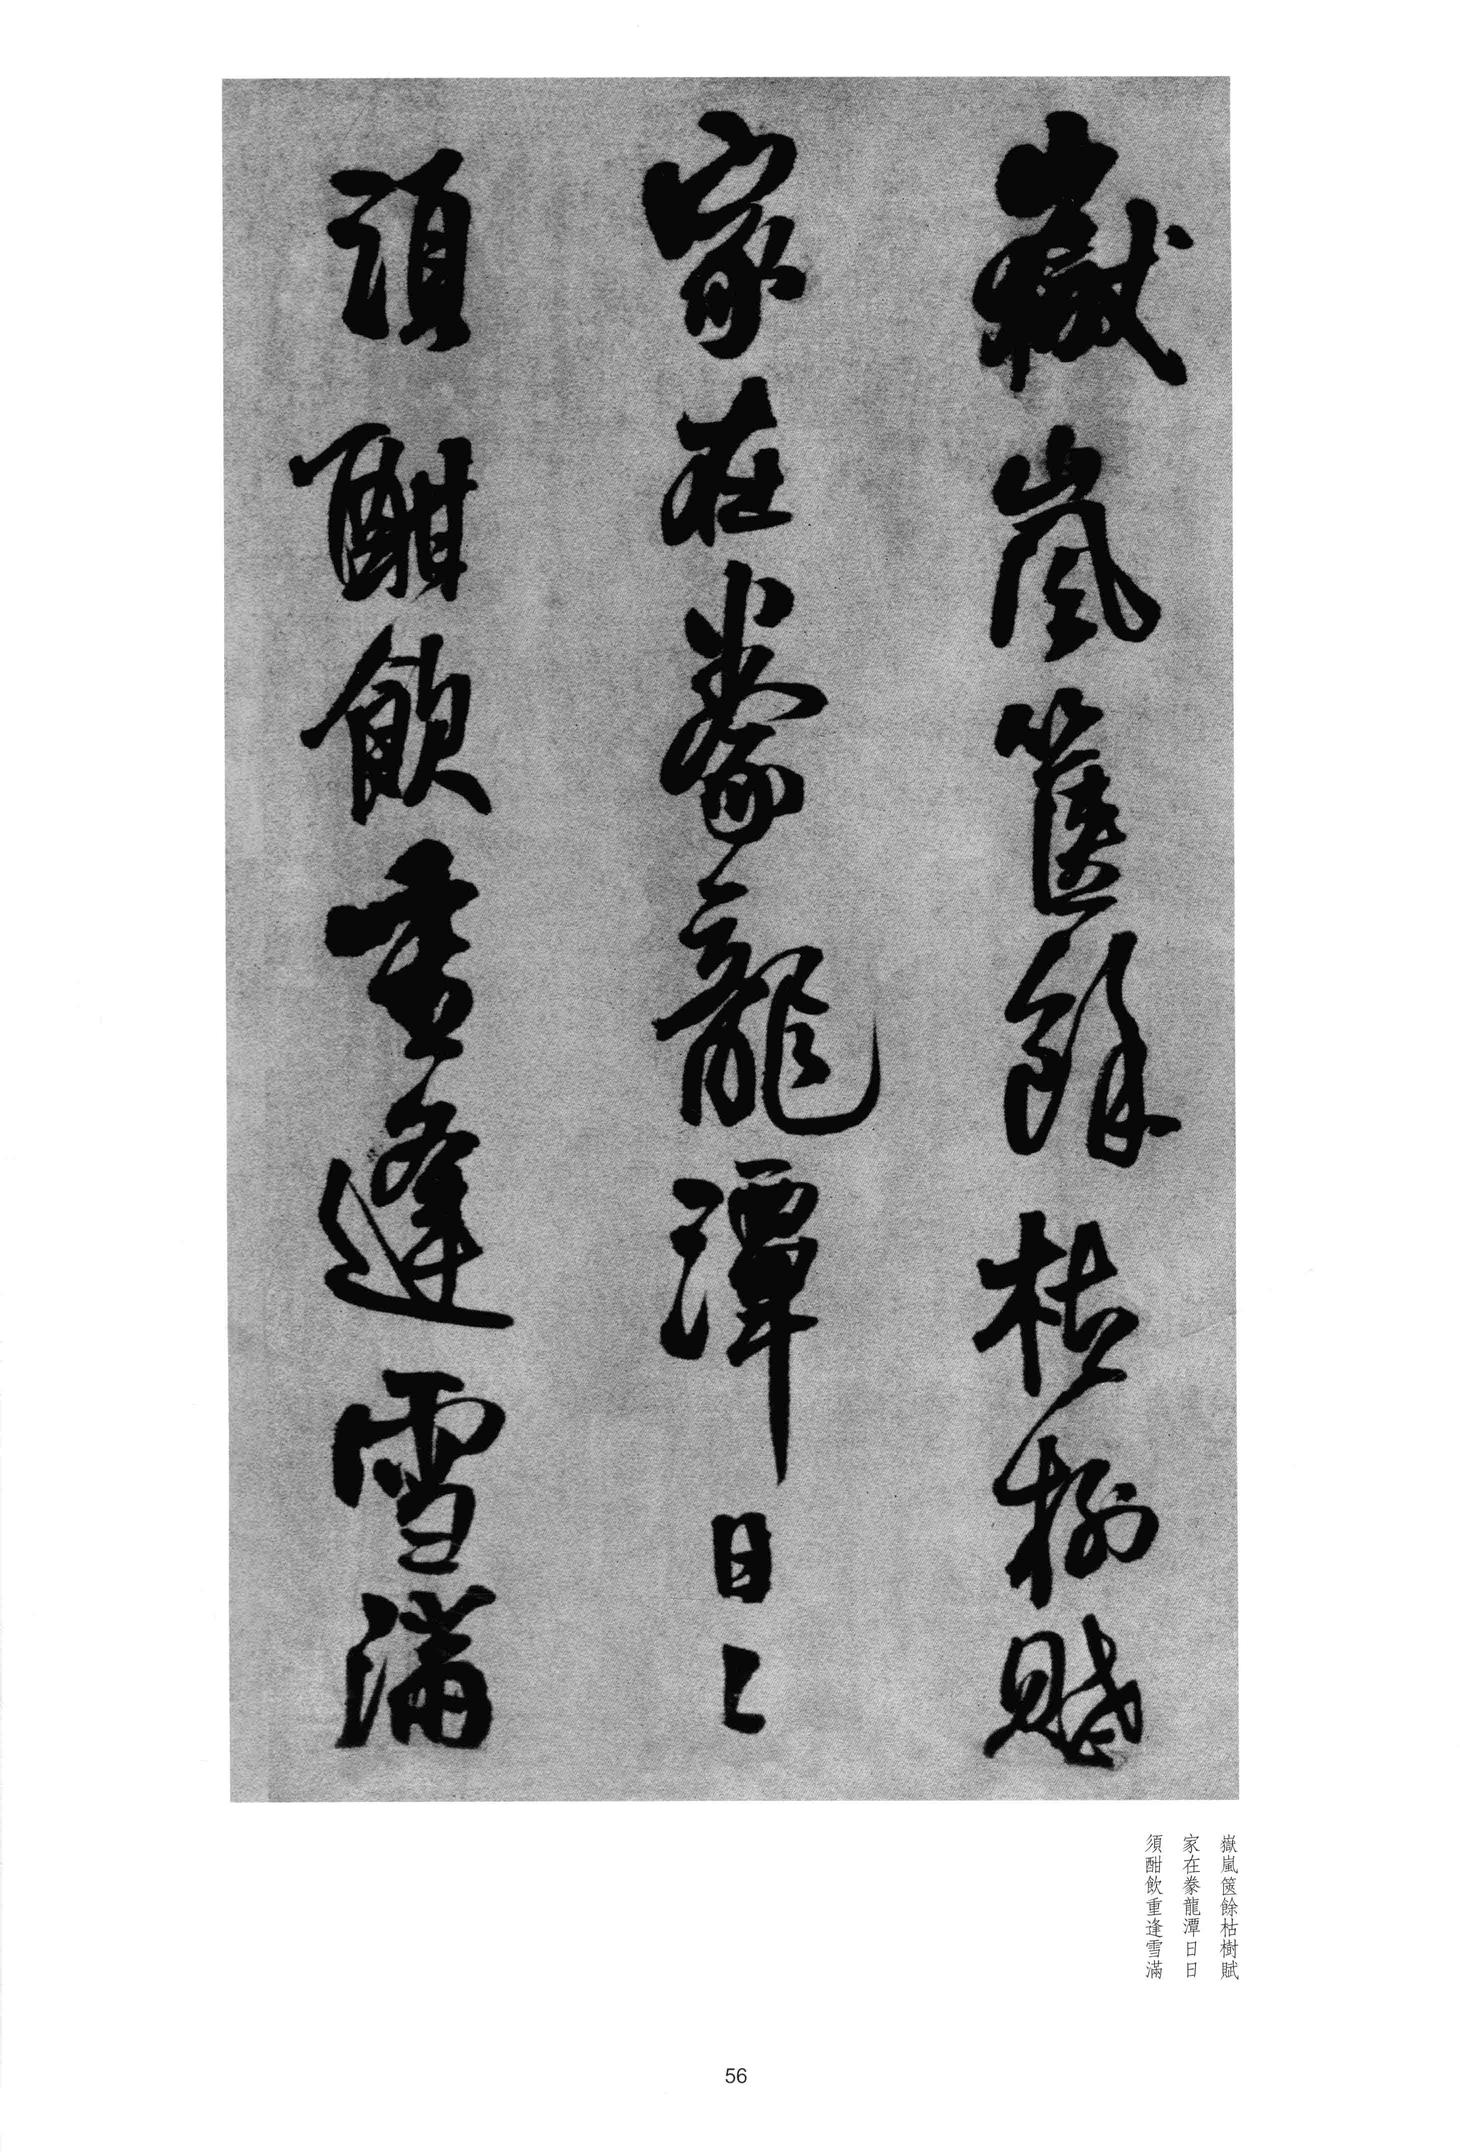 嶽嵐篋餘枯樹賦
家在豢龍潭日〻
須酣飲重逢雪滿
嶽嵐篋餘枯樹賦
家在豢龍潭日日
須酣飲重逢雪滿
56